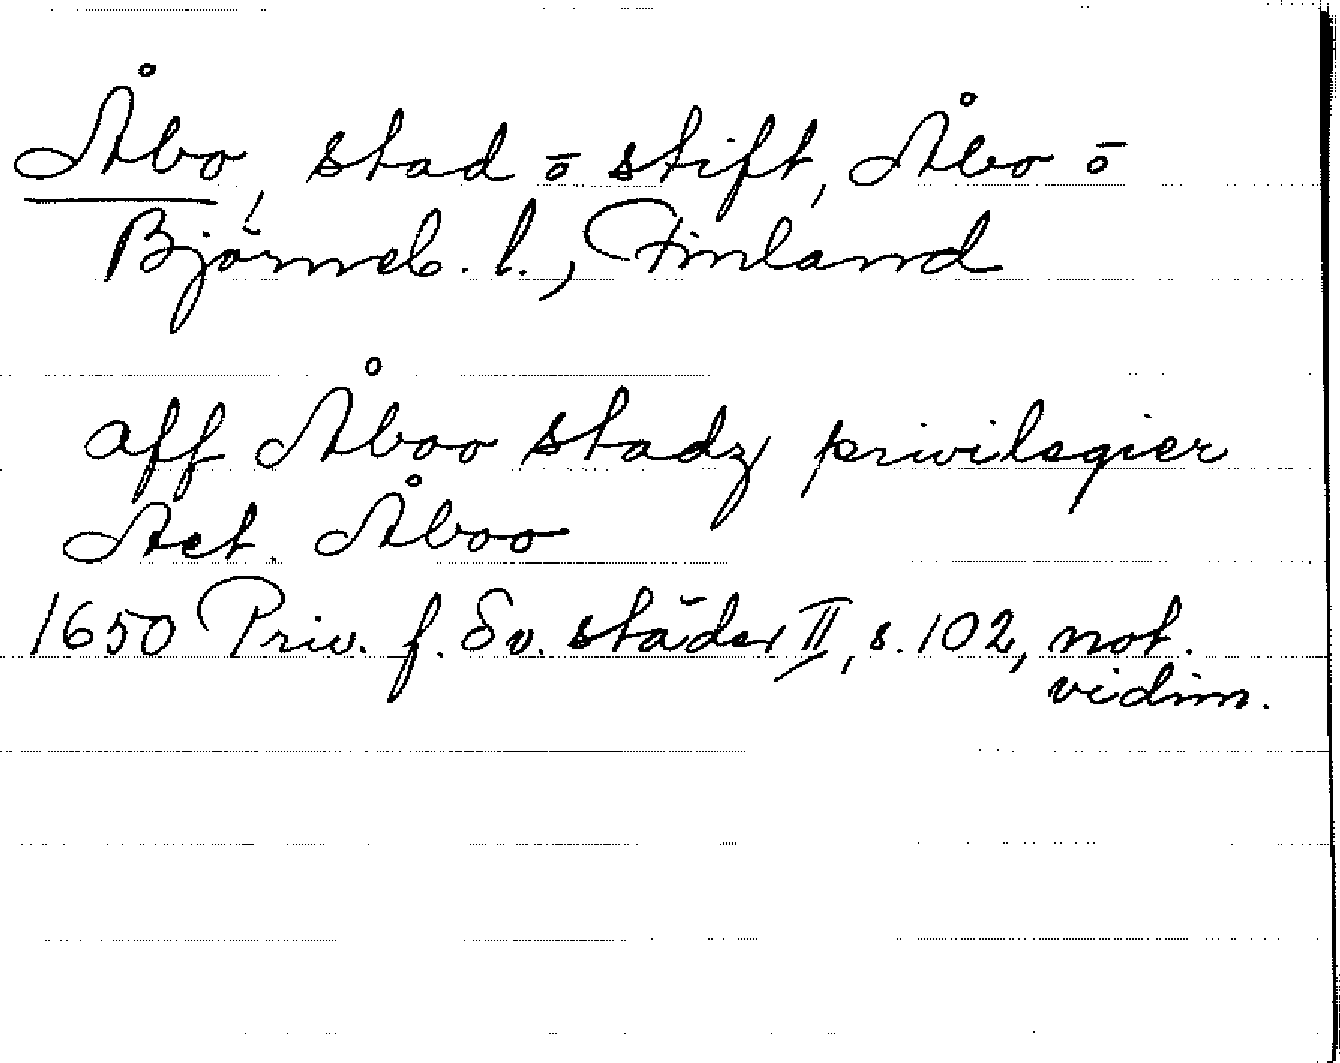 Åbo, stad ō stift, Åbo ō
Björneb. l., Finland
aff Åboo stadz privilegier
Act. Åboo
1650 Priv. f. Sv. städer II, s. 102, not.
vidim.